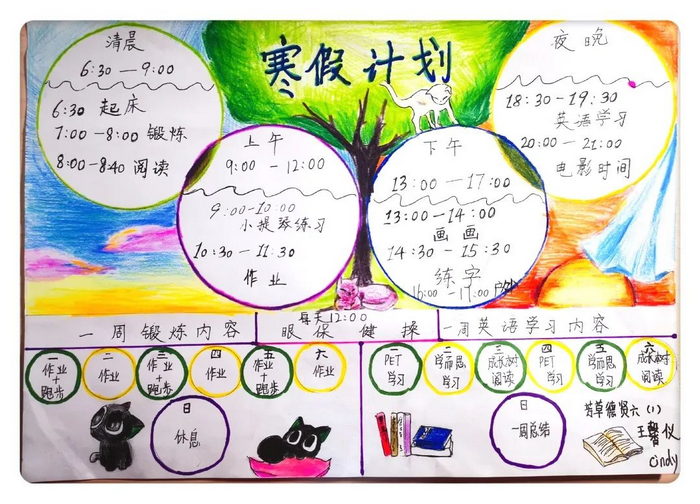 寒假计划
清晨
6:30 — 9:00
6:30 起床
7:00 — 8:00 锻炼
8:00 — 8:40 阅读
上午
9:00 — 12:00
9:00 — 10:00
小提琴练习
10:30 — 11:30
作业
下午
13:00 — 17:00
13:00 — 14:00
画画
14:30 — 15:30
练字
16:00 — 17:00
夜晚
18:30 — 19:30
英语学习
20:00 — 21:00
电影时间
每天12:00
眼保健操
一周锻炼内容
一
作业
+
跑步
二
作业
三
作业
+
跑步
四
作业
五
作业
+
跑步
六
作业
日
休息
一周英语学习内容
一
PET
学习
二
学而思
学习
三
成长树
阅读
四
PET
学习
五
学而思
学习
六
成长树
阅读
日
一周总结
芳草德贤六（1）
王馨仪
cindy